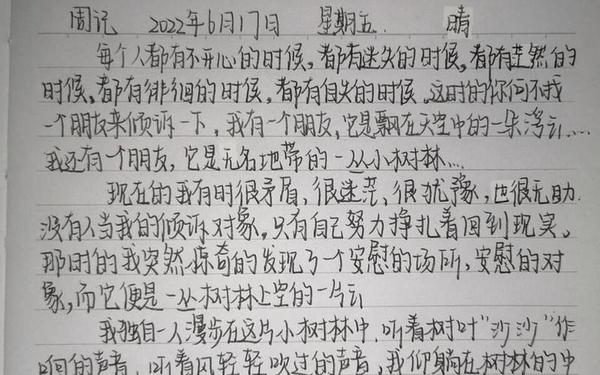 周记 2022年6月17日 星期五 晴
每个人都有不开心的时候,都有迷失的时候,都有茫然的
时候,都有徘徊的时候,都有自失的时候。这时的你何不找
一个朋友来倾诉一下,我有一个朋友,它是飘在天空中的一朵浮云....
我还有一个朋友,它是无名地带的一丛小树林...
现在的我有时很矛盾、很迷茫、很犹豫,也很无助.
没有人当我的倾诉对象,只有自己努力挣扎着回到现实。
那时的我突然惊奇的发现了一个安慰的场所,安慰的对
象,而它便是一丛树林上空的一片云
我独自一人漫步在这片小树林中,听着树叶"沙沙"作
响的声音,听着风轻轻吹过的声音,我仰躺在树林的中